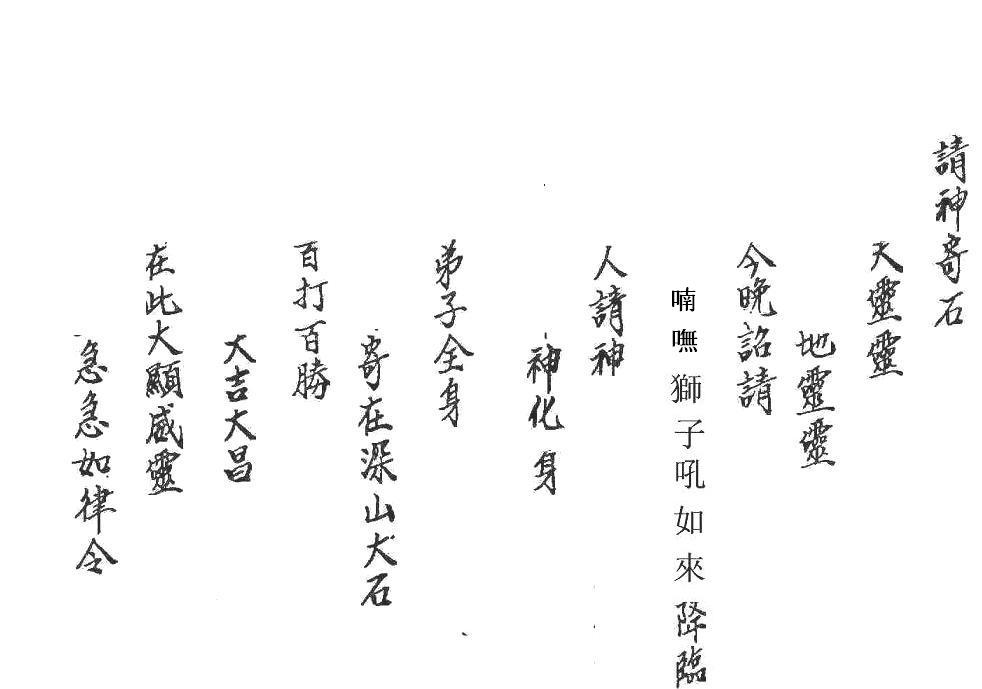 請神寄石
天靈靈
地靈靈
今晚詔請
喃嘸獅子吼如來降臨
人請神
神化身
弟子全身
寄在深山大石
百打百勝
大吉大昌
在此大顯威靈
急急如律令